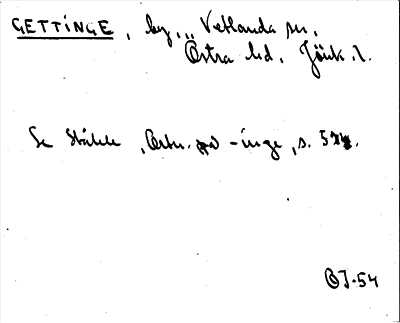 GETTINGE, by, Vetlanda sn,
Östra hd, Jönk. l.
Se Ståhle, Ortn. på -inge, s.
OJ-54